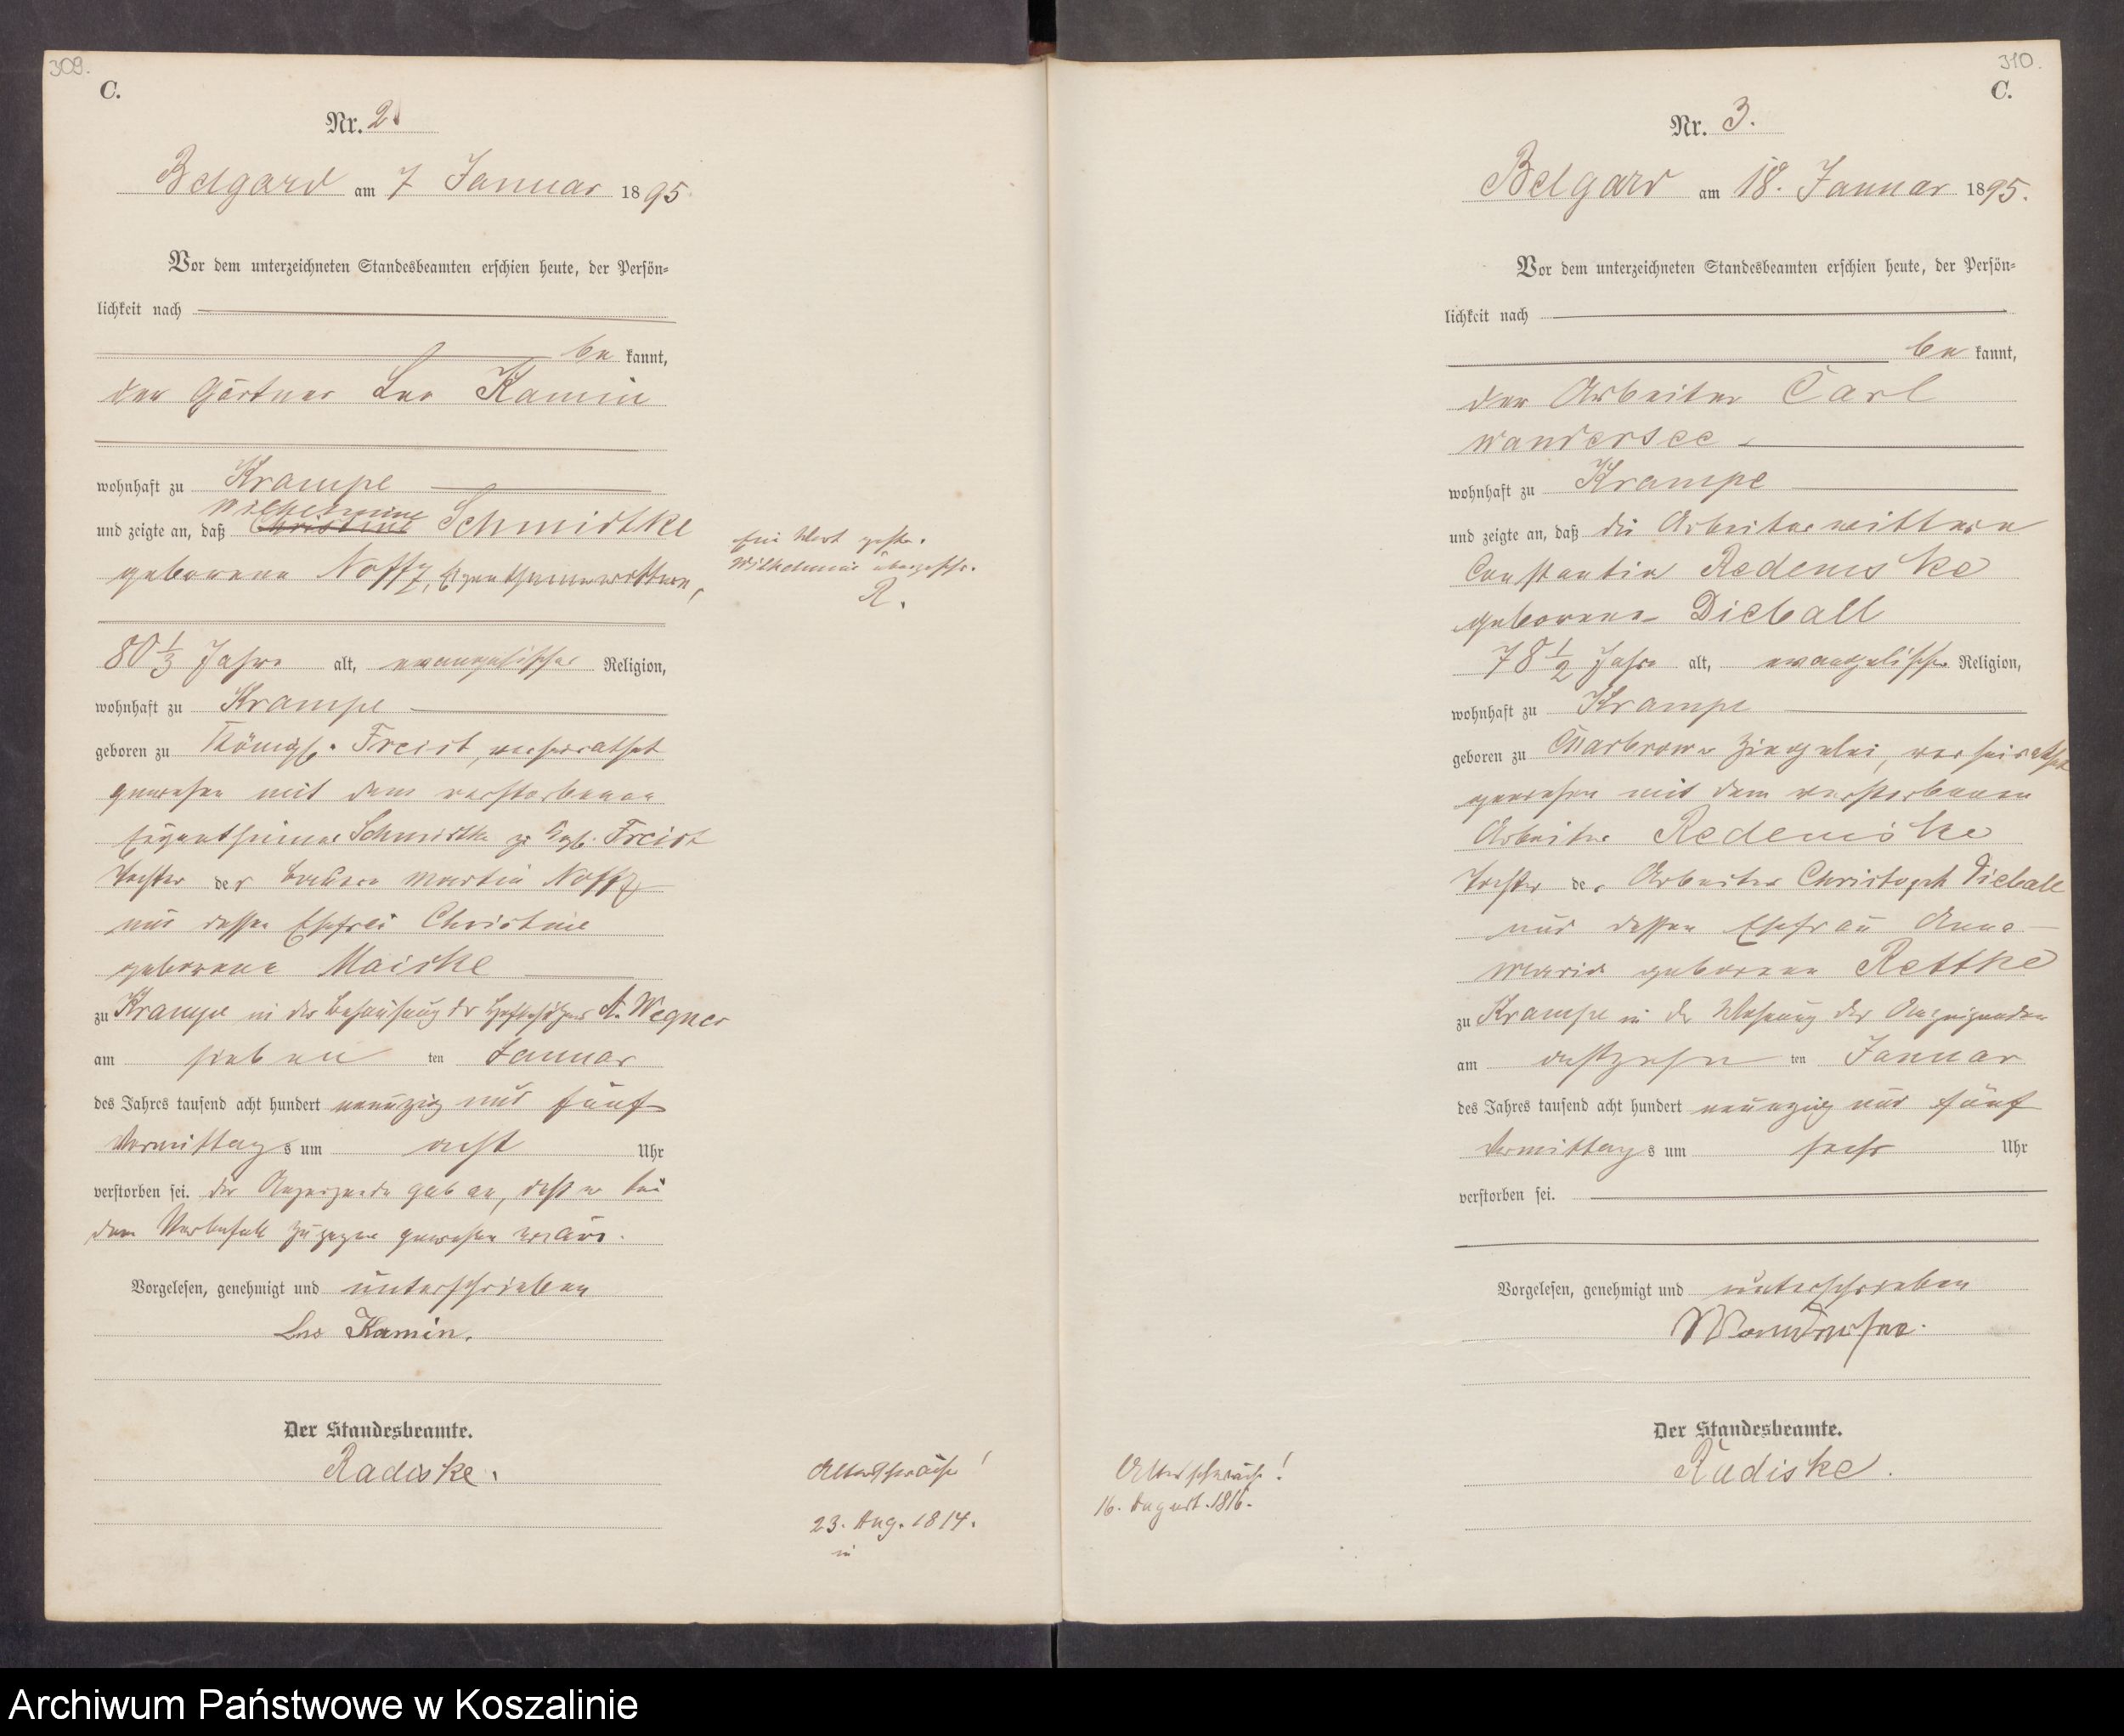 309.
C.
Nr. 2.
Belgard am 7 Januar 1895
Vor dem unterzeichneten Standesbeamten erschien heute, der Persön=
lichkeit nach
be kannt,
der Gärtner Leo Kamin
wohnhaft zu Krampe
Wilhelmine
und zeigte an, daß Christine Schmidtke
geborene Noffz, Eigenthümerwittwe,
80 1/3 Jahre alt, evangelischer Religion,
wohnhaft zu Krampe
geboren zu Königl. Freist, verheirathet
gewesen mit dem verstorbenen
Eigenthümer Schmidtke zu Kgl. Freist
Tochter der Martin Noffz
und dessen Ehefrau Christine
geborene Maiske
zu Krampe in der Behausung des Hofbesitzers A. Wegner
am sieben ten Januar
des Jahres tausend acht hundert neunzig und fünf
Vormittags um acht Uhr
verstorben sei. Der Anzeigende gab an, daß er bei
dem Sterbefall zugegen gewesen wäre.
Vorgelesen, genehmigt und unterschrieben
Leo Kamin.
Der Standesbeamte.
Radiske.
Ein Wort gestr.
Wilhelmine übergeschr.
R.
Altersschwäche!
23. Aug. 1814.
in
310.
C.
Nr. 3.
Belgard am 18. Januar 1895.
Vor dem unterzeichneten Standesbeamten erschien heute, der Persön=
lichkeit nach
be kannt,
der Arbeiter Carl
Wandersee
wohnhaft zu Krampe
und zeigte an, daß die Arbeiterwittwe
Constantia Redemske
geborene Dieball
78 1/2 Jahre alt, evangelischer Religion,
wohnhaft zu Krampe
geboren zu Charbrower Ziegelei, verheirathet
gewesen mit dem verstorbenen
Arbeiter Redemske
Tochter des Arbeiter Christoph Dieball
und dessen Ehefrau Anna
Maria geborene Rettke
zu Krampe in der Wohnung des Anzeigenden
am achtzehn ten Januar
des Jahres tausend acht hundert neunzig und fünf
Vormittags um sechs Uhr
verstorben sei.
Vorgelesen, genehmigt und unterschrieben
Wandersee.
Der Standesbeamte.
Radiske.
Altersschwäche!
16. August. 1816.
Archiwum Państwowe w Koszalinie